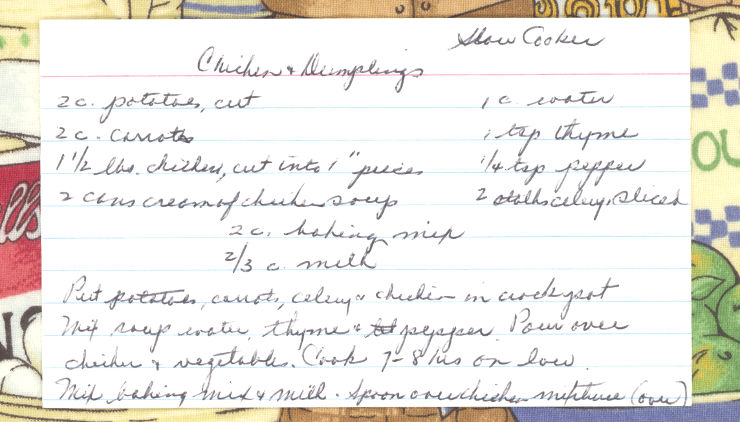 Slow Cooker
Chicken & Dumplings
2 c. potatoes, cut 1 c. water
2 c. carrots 1 tsp thyme
1 1/2 lbs. chicken, cut into 1" pieces 1/4 tsp pepper
2 cans cream of chicken soup 2 stalks celery, sliced
2 c. baking mix
2/3 c. milk
Put potatoes, carrots, celery & chicken in crock pot
Mix soup water, thyme & pepper. Pour over
chicken & vegetables. Cook 7-8 hrs on low.
Mix baking mix & milk. Spoon over chicken mixture (over)